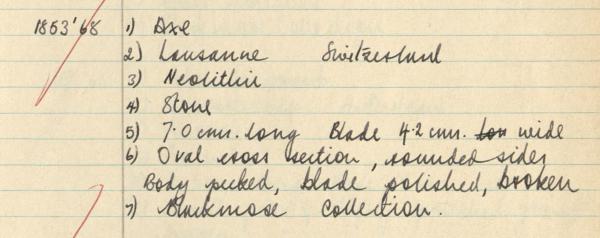 1853'68 1) Axe
2) Lausanne Switzerland
3) Neolithic
4) Stone
5) 7.0 cms. long Blade 4.2 cms. lon wide
6) Oval cross section, rounded sides
Body pecked, blade polished, broken
7) Blackmore Collection.